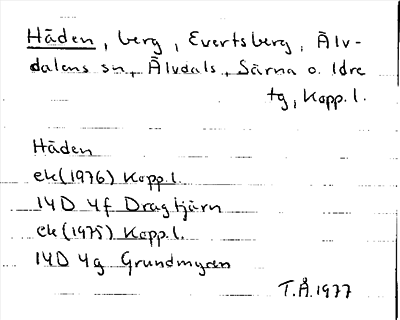 Håden, berg, Evertsberg, Älv-
dalens sn, Älvdals, Särna o. Idre
tg, Kopp. l.
Håden
ek (1976) Kopp. l.
14D 4f Dragtjärn
ek (1975) Kopp. l.
14D 4g Grundmyren
T.Å. 1977